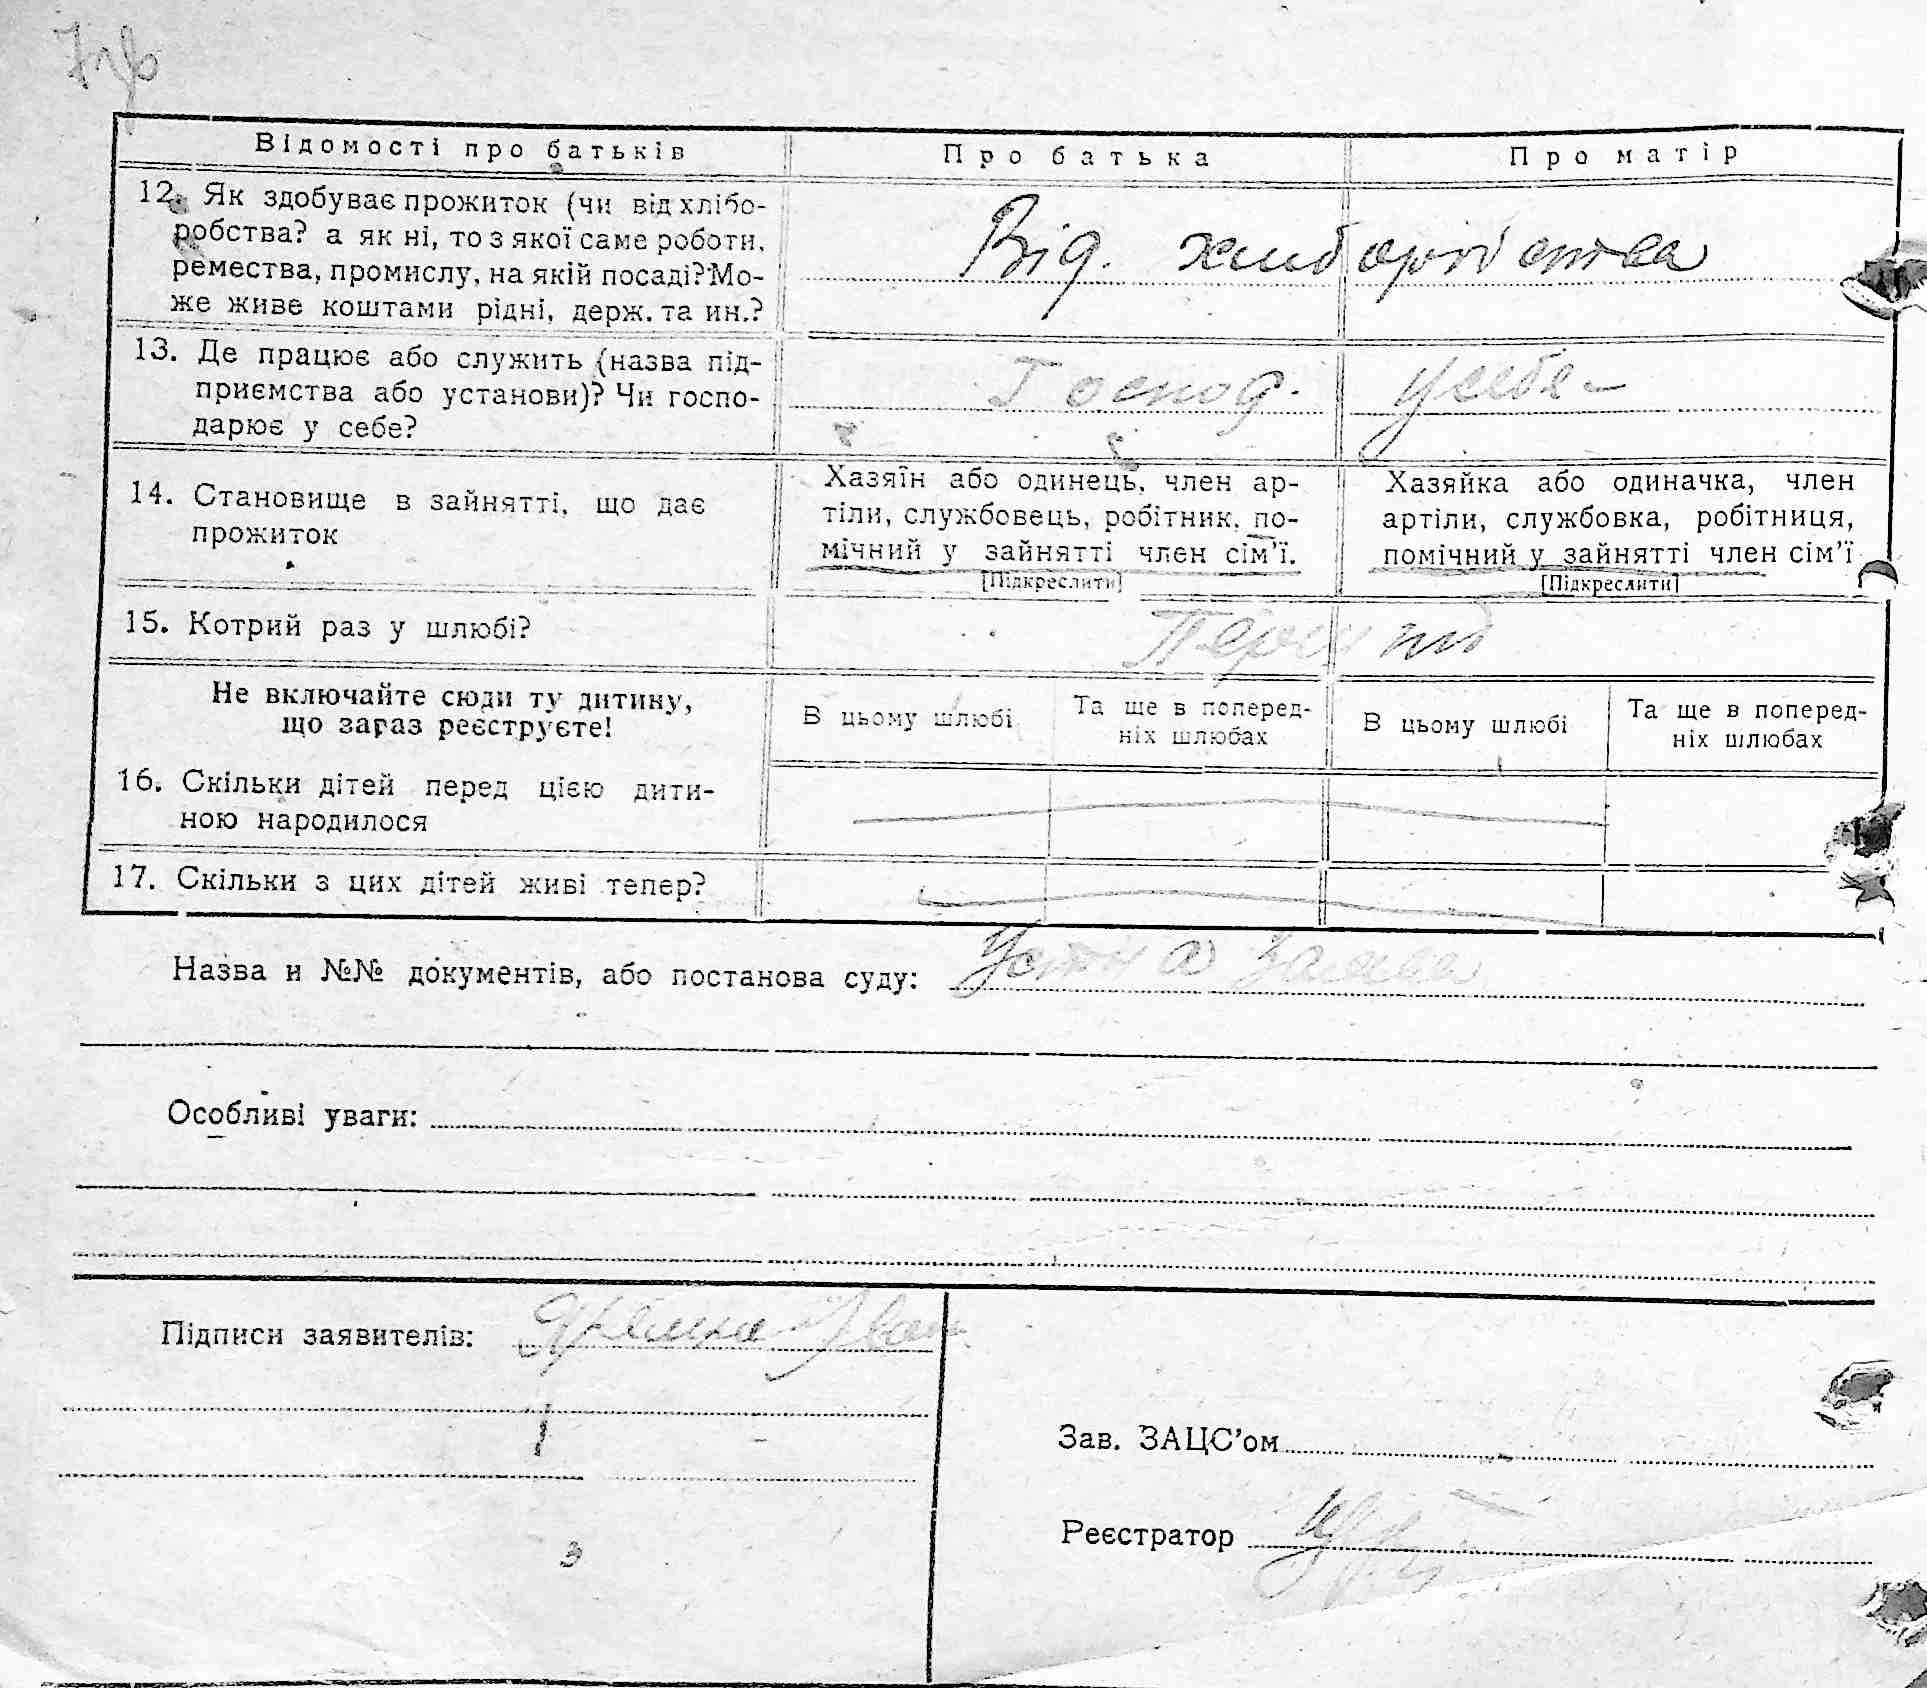 Відомості про батьків
Про батька
Про матір
12. Як здобуває прожиток (чи від хлібо-
робства? а як ні, то з якої саме роботи,
ремества, промислу, на якій посаді? Мо-
же живе коштами рідні, держ. та ин.?
Від.
13. Де працює або служить (назва під-
приємства або установи)? Чи госпо-
дарює у себе?
Господ. у себя
14. Становище в зайнятті, що дає
прожиток
Хазяїн або одинець, член ар-
тіли, службовець, робітник, по-
мічний у зайнятті член сім'ї.
[Підкреслити]
Хазяйка або одиначка, член
артіли, службовка, робітниця,
помічний у зайнятті член сім'ї
[Підкреслити]
15. Котрий раз у шлюбі?
Не включайте сюди ту дитину,
що зараз реєструєте!
В цьому шлюбі
Та ще в поперед-
ніх шлюбах
В цьому шлюбі
Та ще в поперед-
ніх шлюбах
16. Скільки дітей перед цією дити-
ною народилося
17. Скільки з цих дітей живі тепер?
Назва и №№ документів, або постанова суду: Устна заява
Особливі уваги:
Підписи заявителів: Іван
Зав. ЗАЦС'ом
Реєстратор